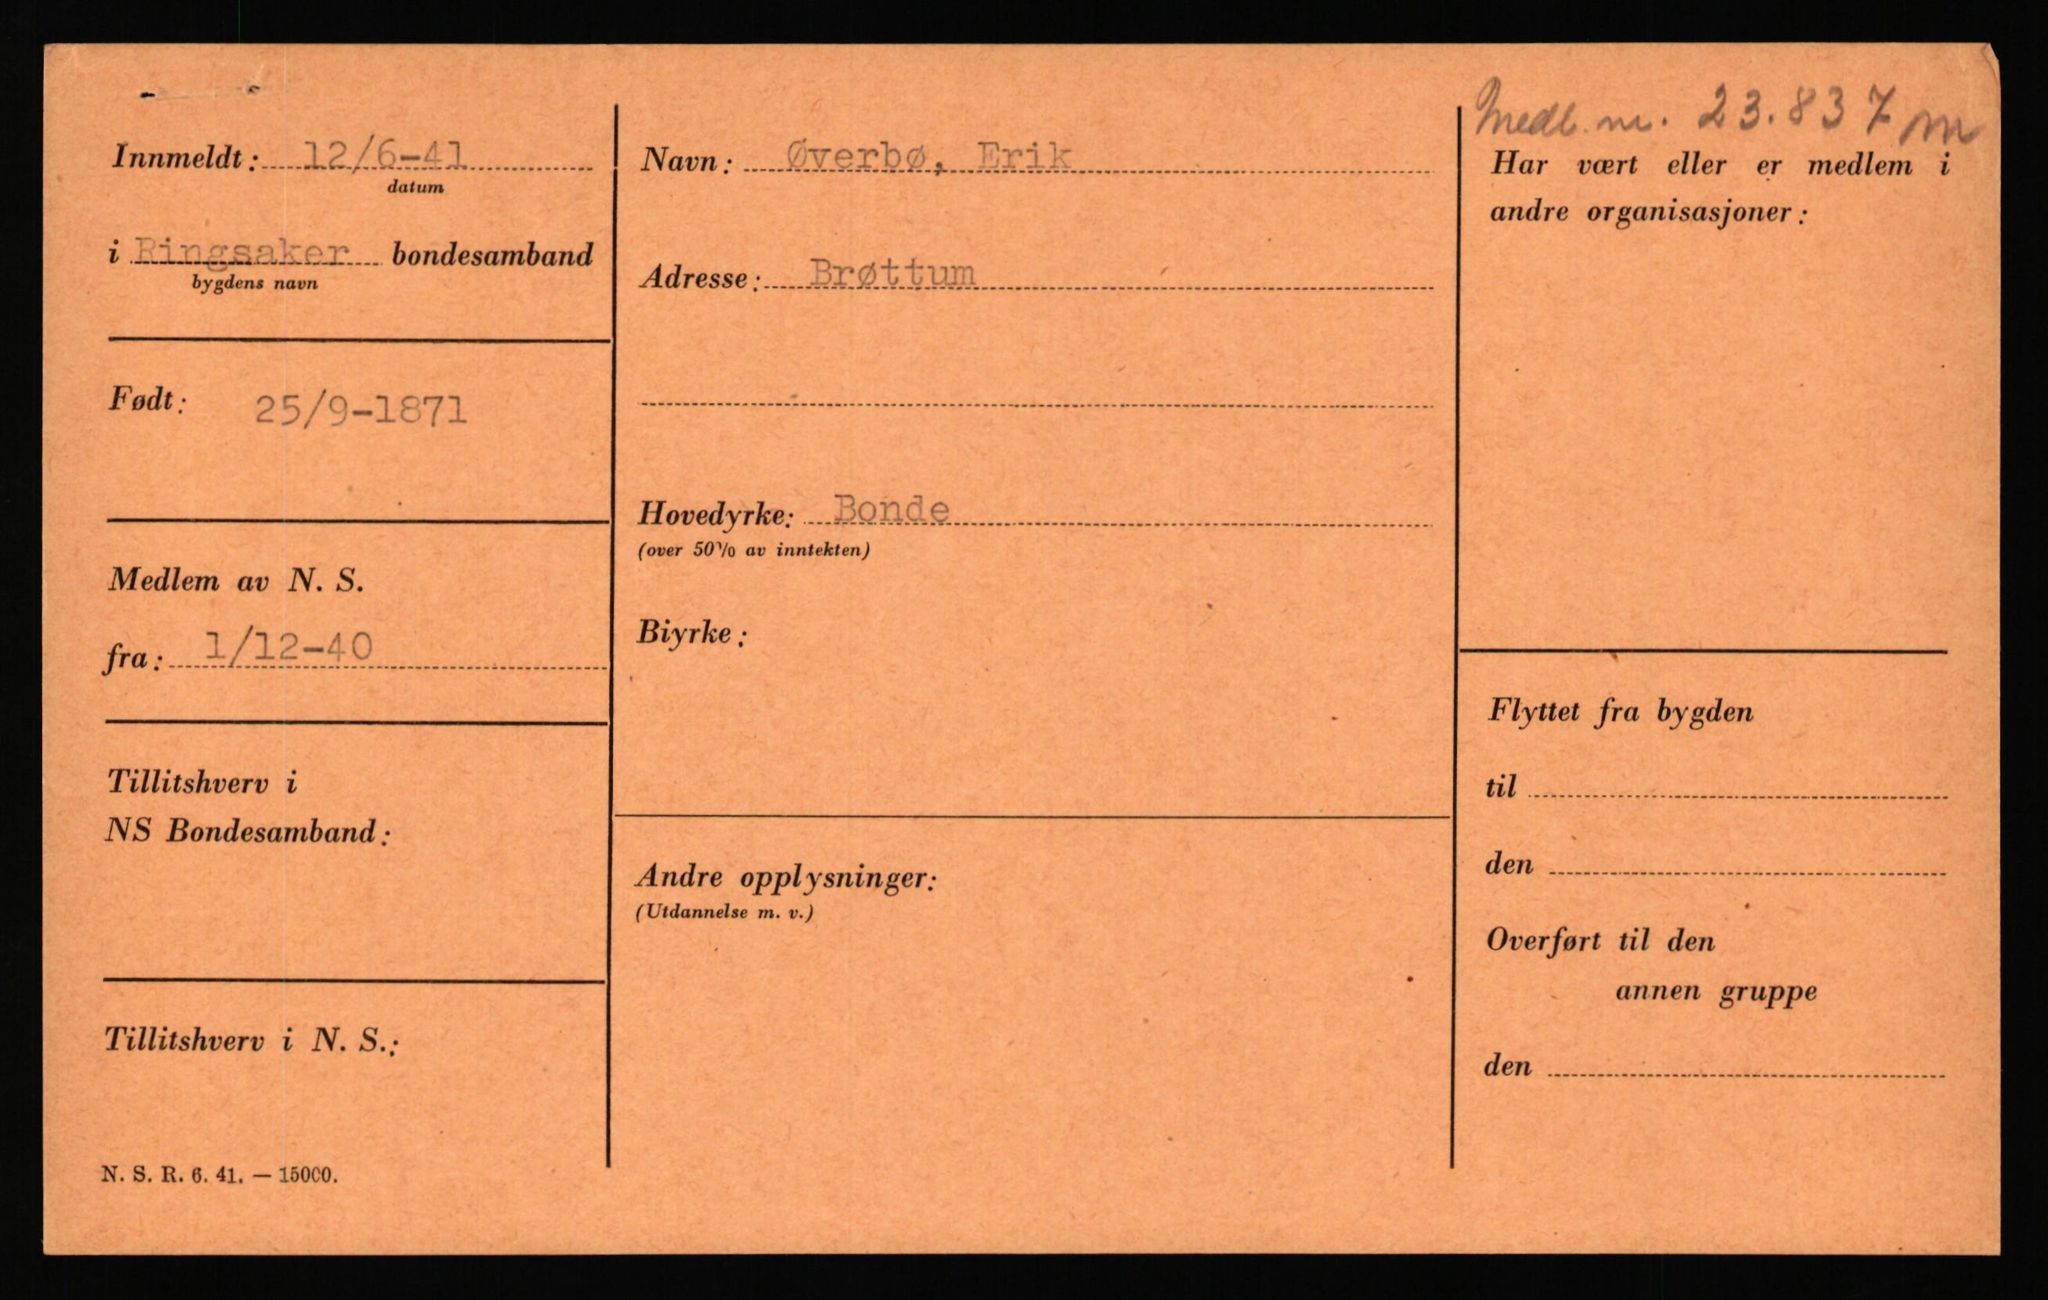 Innmeldt: 12/6-41
datum
i Ringsaker bondesamband
bygdens navn
Født: 25/9-1871
Medlem av N. S.
fra: 1/12-40
Tillitshverv i
NS Bondesamband:
Tillitshverv i N. S.:
N. S. R. 6. 41. — 15000.
Navn: Øverbø, Erik
Adresse: Brøttum
Hovedyrke: Bonde
(over 50% av inntekten)
Biyrke:
Andre opplysninger:
(Utdannelse m. v.)
Medl. nr. 23.837 m
Har vært eller er medlem i
andre organisasjoner:
Flyttet fra bygden
til
den
Overført til den
annen gruppe
den